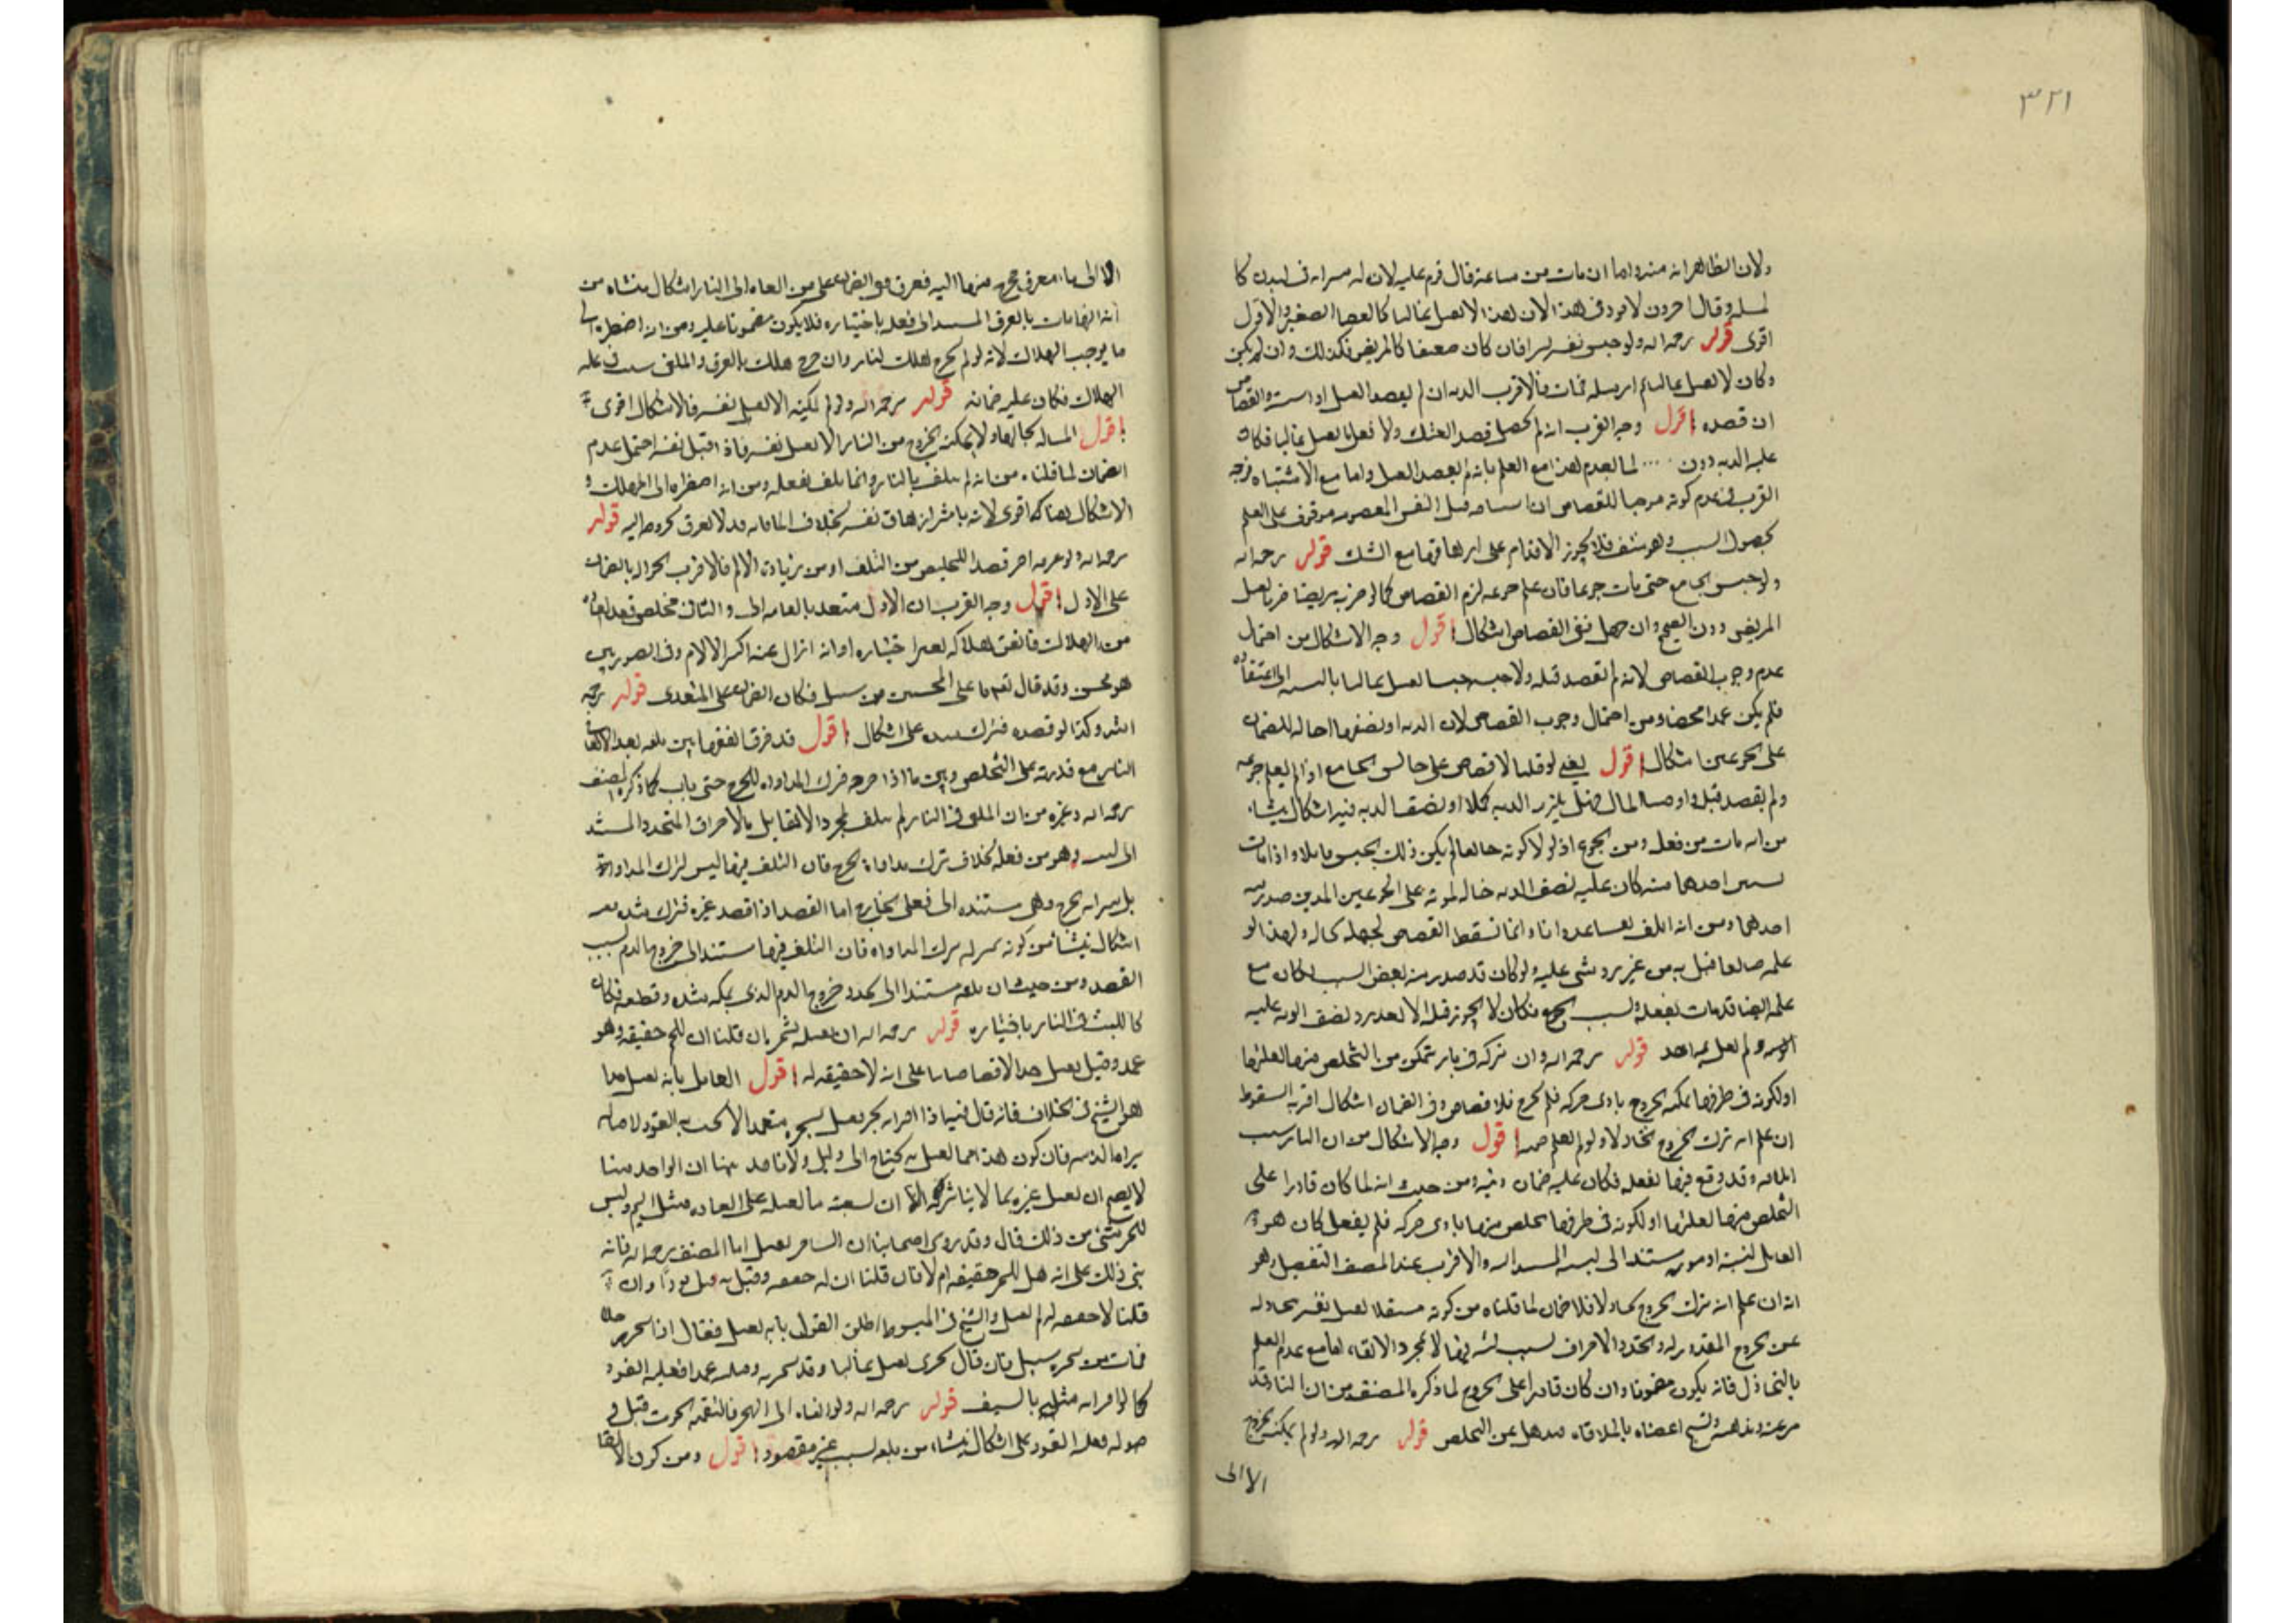 ٣٢١
ولان الظاهر انه منه واما ان مات من ساعته قال قوم عليه لان له سراية في البدن كا
لمسلة وقال اخرون لا قود في هذا الان هذا لا يقتل غالبا كالعصا الصغير والاول
اقوى قوله رحمه الله ولو حبس نفسه يسيرا فان كان ضعيفا كالمريض فكذلك وان لم يكن
وكان لا يقتل غالبا ثم ارسله فمات فالاقرب الدية ان لم يقصد القتل او اشتبه والقصاص
ان قصده اقول وجه القرب انه لم يحصل قصد القتل ولا فعل ما يقتل غالبا فكان
عليه الدية دون لما تقدم هذا مع العلم بانه لم يقصد القتل واما مع الاشتباه فوجه
القرب في عدم كونه موجبا للقصاص ان قتل النفس المعصومة موقوف على العلم
بحصول السبب وهو منتف فلا يجوز الاقدام على ازهاقها مع الشك قوله رحمه الله
ولو حبس الجائع حتى مات جوعا فان علم جوعه لزم القصاص كما لو ضرب مريضا ضربا يقتل
المريض دون الصحيح وان جهل ففي القصاص اشكال اقول وجه الاشكال من احتمال
عدم وجوب القصاص لانه لم يقصد قتله ولا حبسه حبسا يقتل غالبا بالنسبة الى اعتقاده
فلم يكن عمدا محضا ومن احتمال وجوب القصاص لان الدية او نصفها احالة للضمان
على الجوعين اشكال اقول يعني لو قلنا لا قصاص على حابس الجائع اذا لم يعلم جوعه
ولم يقصد قتله واوجبنا المال فهل يلزم الدية كملا او نصف الدية فيه اشكال ينشا
من انه مات من فعله ومن الجوع اذ لولا كونه جائعا لم يكن ذلك الحبس قاتلا واذا مات
بسببين احدهما منه كان عليه نصف الدية احالة لموته على الجوعين الذين صدر منه
احدهما ومن انه اتلف نفسا عدوانا وانما نسقط القصاص لجهله بحاله ولهذا لو
علمه جائعا قتل به من غير رد شي عليه ولو كان قد صدر منه بعض السبب لكان مع
علمه ايضا قد مات بفعله وبسبب الجوع فكان لا يجوز قتله الا بعد رد نصف الدية عليه
ولم يقل به احد قوله رحمه الله وان تركه في نار يتمكن من التخلص منها لقلتها
او لكونه في طرفها يمكنه الخروج بادنى حركة فلم يخرج فلا قصاص وفي الضمان اشكال اقربه السقوط
ان علم انه ترك الخروج تخاذلا ولو لم يعلم ضمنه اقول وجه الاشكال من ان النار سبب
التلف وقد وقع فيها بفعله فكان عليه ضمان ديته ومن حيث انه لما كان قادرا على
التخلص منها لقلتها او لكونه في طرفها يخلص منها بادنى حركة فلم يفعل كان هو
القاتل لنفسه او موته مستندا الى لبثه المستند اليه والاقرب عند المصنف التفصيل وهو
انه ان علم انه ترك الخروج تخاذلا فلا ضمان لما قلناه من كونه مستقلا بقتل نفسه بتخاذله
عن الخروج المقدور له وتجدد الاحراق بسبب لبثه فيها لا بمجرد الالقاء اما مع عدم العلم
بالتخاذل فانه يكون مضمونا وان كان قادرا على الخروج لما ذكره المصنف من ان النار قد
ترعبه وتدهشه وتشنج اعضاه بالملاقاة فيذهل عن التخلص قوله رحمه الله ولو لم يمكنه الخروج
الا الى
الا الى ماء مغرق فخرج منها اليه فغرق ففي الضمان على من القاه الى النار اشكال منشاه من
انه انما مات بالغرق المستند الى فعله باختياره فلا يكون مضمونا عليه ومن انه اضطره الى
ما يوجب الهلاك لانه لو لم يخرج لهلك بالنار وان خرج هلك بالغرق والملقي سبب في
الهلاك فكان عليه ضمانه قوله رحمه الله ولو لم يمكنه الا بقتل نفسه فالاشكال اقوى
اقول المسالة بحالها ولا يمكنه الخروج من النار الا بقتل نفسه فاذا قتل نفسه احتمل عدم
الضمان لما قلناه من انه لم يتلف بالنار وانما تلف بفعله ومن انه اضطره الى المهلك و
الاشكال هنا اقوى لانه باشر ازهاق نفسه بخلاف الماء فانه قد لا يغرق بخروجه اليه قوله
رحمه الله ولو غرقه اخر قصدا لتخليصه من التلف او من زيادة الالم فالاقرب الحوالة بالضمان
على الاول اقول وجه القرب ان الاول متعد بالقائه والثاني مخلص قصد انقاذه
من الهلاك فاتفق اهلاكه بغير اختياره او انه ازال عنه اكثر الالام وفي الصورتين
هو محسن وقد قال تعالى ما على المحسنين من سبيل فكان الضمان على المتعدي قوله رحمه
الله وكذا لو فصده فترك شده على اشكال اقول قد فرق الفقهاء بين تلفه بعد الالقا في
النار مع قدرته على التخلص وبين ما اذا جرحه فترك المداواة للجرح حتى مات كما ذكره المصنف
رحمه الله وغيره من ان الملقى في النار لم يتلف بمجرد الالقا بل بالاحراق المتجدد المستند
الى لبثه وهو من فعله بخلاف ترك مداواة الجرح فان التلف فيها ليس لترك المداواة
بل سراية الجرح وهي مستندة الى فعل الجارح اما الفصد اذا فصد غيره فترك شده ففيه
اشكال ينشا من كونه بمنزلة ترك المداواة فان التلف فيها مستند الى خروج الدم بسبب
الفصد ومن حيث ان تلفه مستند الى تجدد خروج الدم الذي يمكنه شده وقطعه فكان
كاللبث في النار باختياره قوله رحمه الله ان يقتله بسحره ان قلنا ان للسحر حقيقة وهو
عمد وقيل يقتل حدا لا قصاصا بنا على انه لا حقيقة له اقول القائل بانه يقتل حدا
هو الشيخ في الخلاف فانه قال فيها اذا اقر انه سحر فقتل بسحره متعمدا لا يجب به القود لاصالة
براة الذمة فان كون هذا مما يقتل به يحتاج الى دليل ولانا قد بينا ان الواحد منا
لا يصح ان يقتل غيره بما لا يباشره به الا ان يسقيه ما يقتله على العادة مثل السم وليس
للسحر شي من ذلك قال وقد روى اصحابنا ان الساحر يقتل اما المصنف رحمه الله فانه
بنى ذلك على انه هل للسحر حقيقة ام لا فان قلنا ان له حقيقة وقتل به قتل قودا وان
قلنا لا حقيقة له لم يقتل والشيخ في المبسوط اطلق القول بانه يقتل فقال اذا سحر رجلا
فمات من سحره سئل فان قال سحري يقتل غالبا وقد سحرته وقتلته عمدا فعليه القود
كما لو اقر انه قتله بالسيف قوله رحمه الله ولو القاه الى البحر فالتقمه الحوت قبل و
صوله فعليه القود على اشكال ينشا من تلفه بسبب غير مقصود اقول ومن كون الالقا